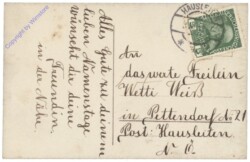 Alles Gute zu deinem
lieben Namenstage
wünscht dir deine
Freundin
in der Nähe.
An
das werte Freilein
Wette Weiß
in Pettendorf N. 21
Post: Hausleiten
N. Ö.